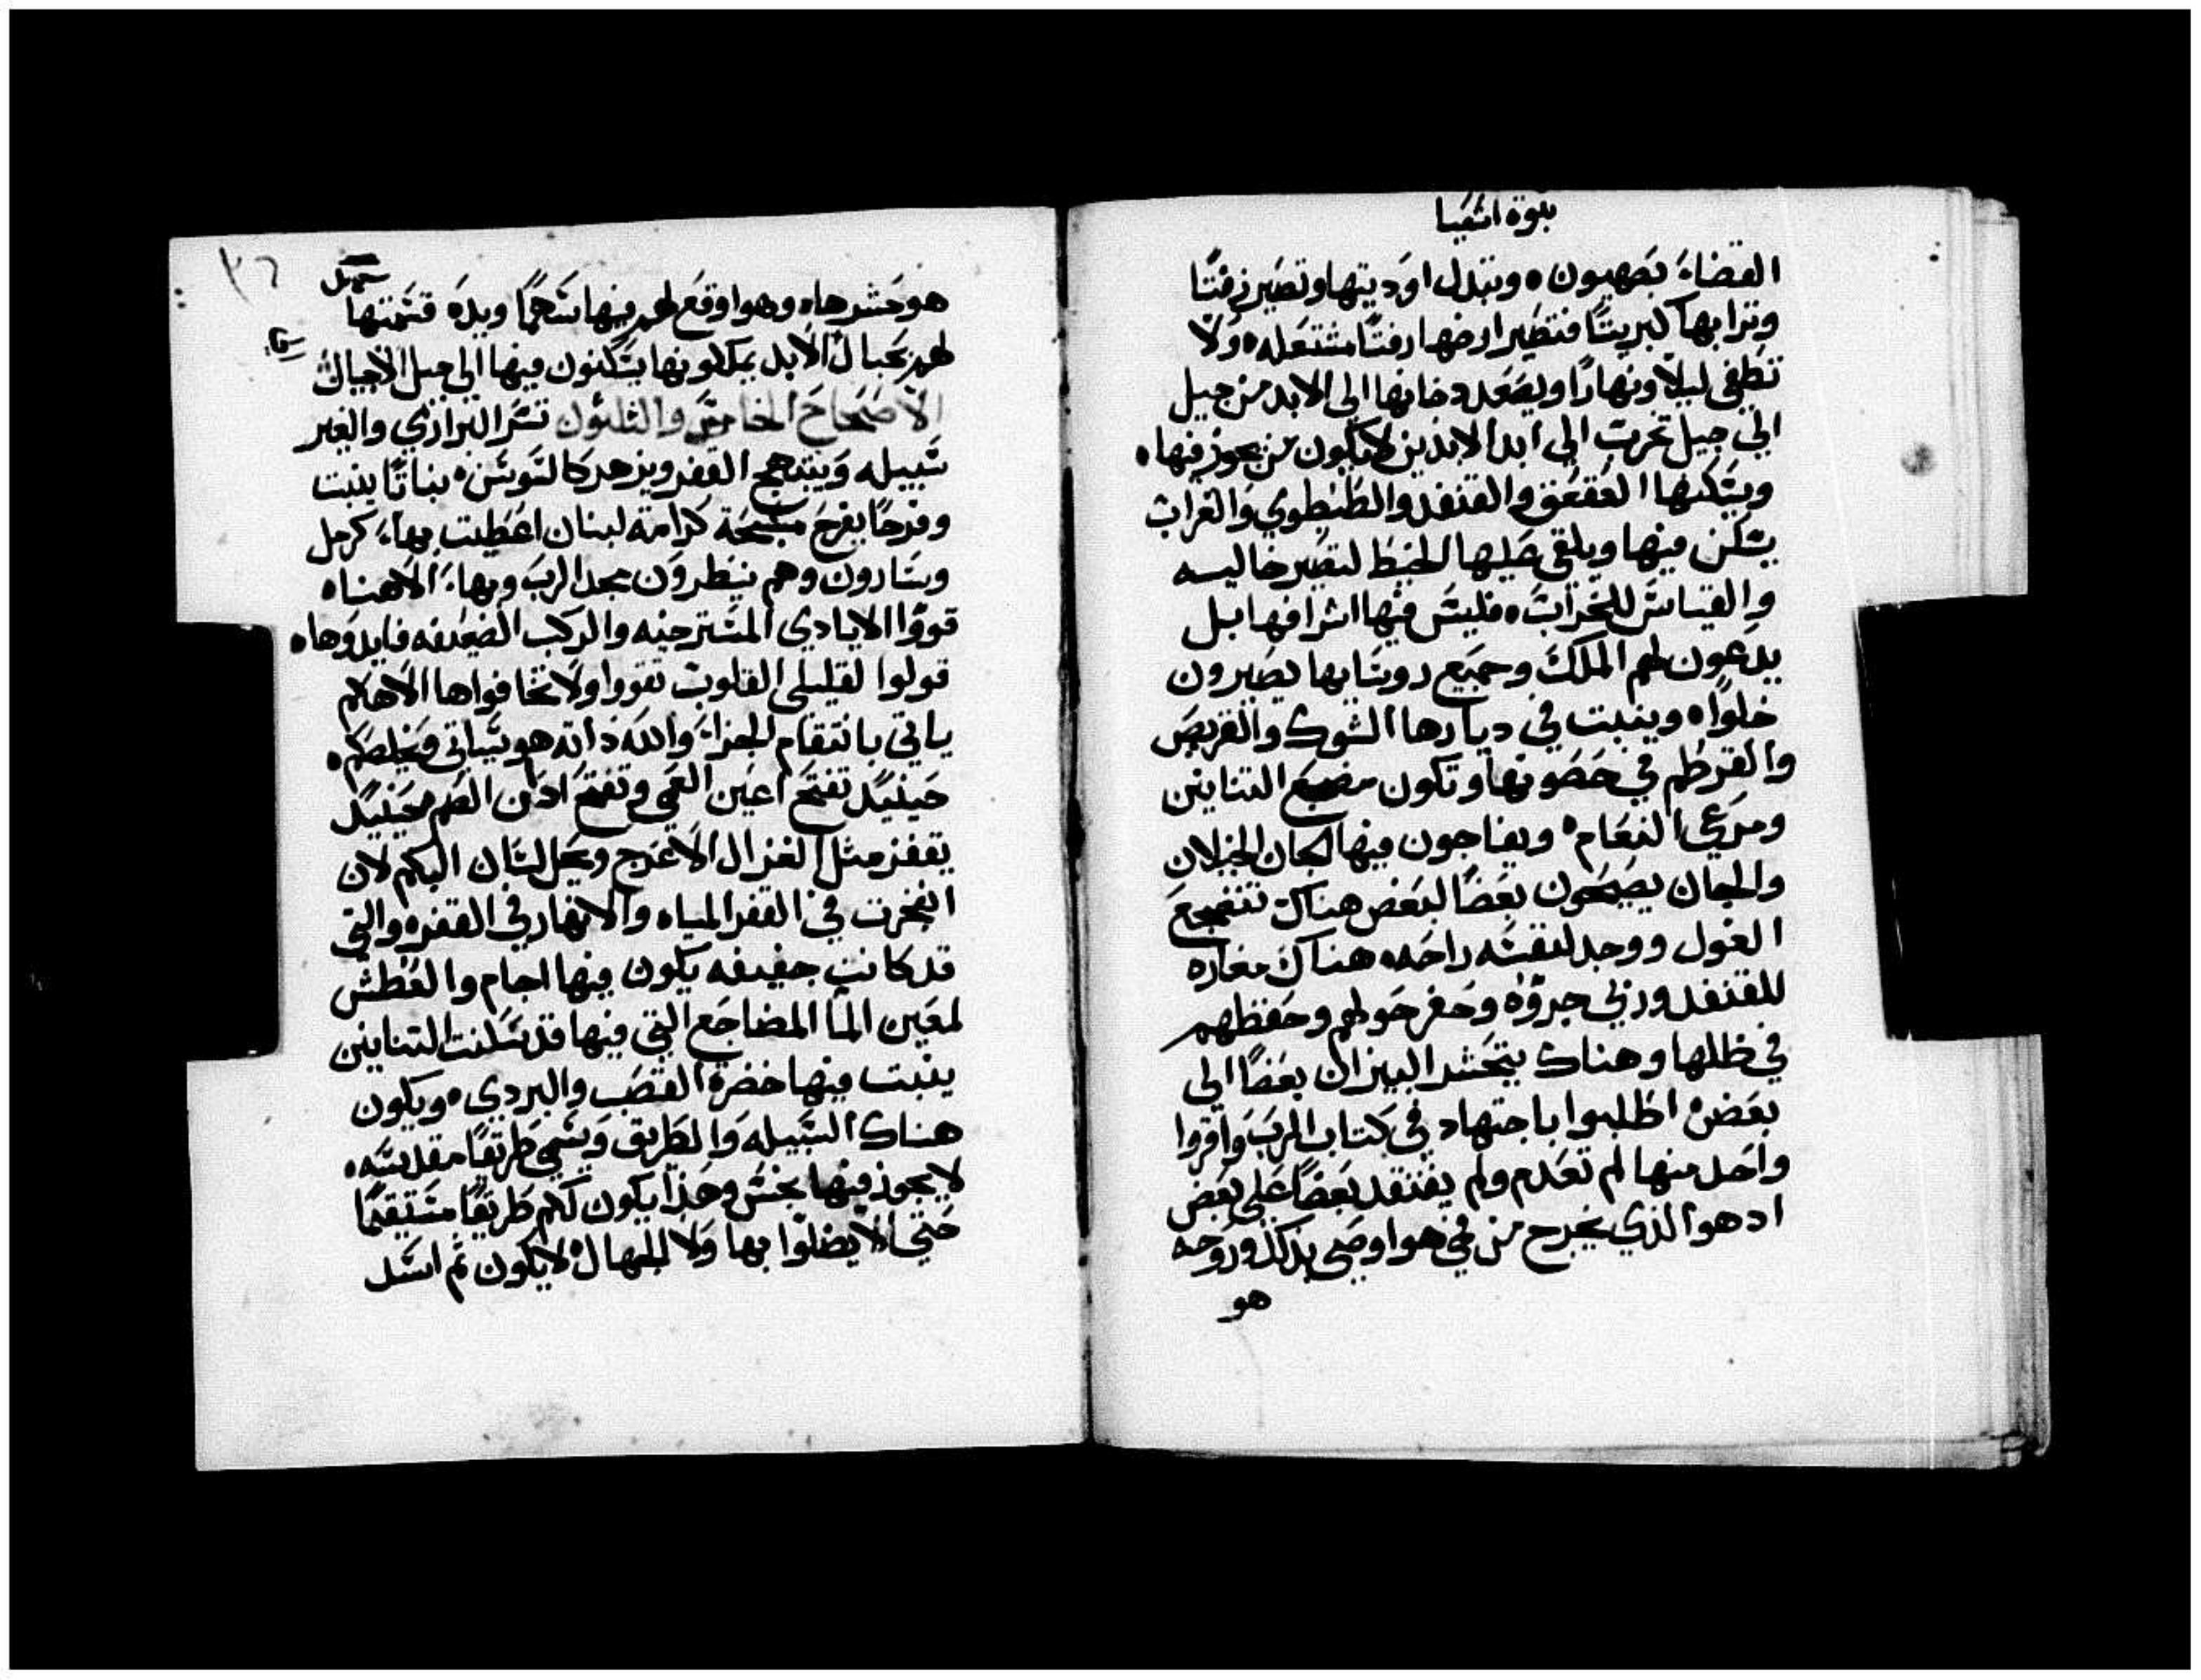 نبوة اشعيا
القضاء بصهيون ٥ وتبدل اوديتها وتصير زفتًا
وترابها كبريتًا فتصير ارضها زفتًا مشتعله ٥ ولا
تطفى ليلاً ونهارًا ويصعد دخانها الى الابد من جيل
الى جيل تخرب الي ابد الابدين لا يكون من يجوز فيها ٥
ويسكنها العقعق والقنفد والطنطوي والغراب
يسكن فيها ويلقى عليها الخيط لتصير خاليه
والقياس للخراب ٥ فليس فيها اشرافها بل
يدعون لهم الملك وجميع روسايها يصيرون
خلوًا ٥ وينبت في ديارها الشوك والقريص
والقرطم في حصونها وتكون مضجع التنانين
ومرعي النعام ٥ ويفاجون فيها الجان الخيلان
والجان يصيحون بعضًا لبعض هناك تنضجع
الغول ووجد لنفسه راحه ٥ هناك مغاره
للقنفد وربى جروه وحفر حولهم وحفظهم
في ظلها وهناك يتحشد البيزان بعضًا الى
بعض ٥ اطلبوا باجتهاد في كتاب الرب واقروا
واحد منها لم تعدم ولم يفتقد بعضًا على بعض
اد هو الذي يخرج من في هو اوصى بذلك وروحه
هو
٣٦
هو حشدها ٥ وهو اوقع لهم فيها سهمًا ويده قسمتها
لهم بحبال الابد يملكونها يسكنون فيها الي جيل الاجيال
الاصحاح الخامس والثلثون تسر البراري والغير
سبيله ويبتهج القفر ويزهر كالسوسن ٥ نباتًا ينبت
وفرحًا يفرح مسبحة كرامة لبنان اعطيت بهاء كرمل
وسارون وهم ينظرون مجد الرب وبهاء الاهنا ٥
قووا الايادي المسترخيه والركب الضعيفه فايدوها ٥
قولوا لقليلي القلوب تقووا ولا تخافوا ها الاهكم
ياتي بانتقام الجزاء والله ذاته هو سياتي ويخلصكم ٥
حينيد تفتح اعين العمي وتفتح ادان الصم حينيد
يقفز مثل الغزال الاعرج ويحل لسان البكم لان
انفجرت في القفر المياه والانهار في القفره والتي
قد كانت جفيفه يكون فيها اجام والعطش
لمعين الما المضاجع التي فيها قد سكنت التنانين
ينبت فيها خضرة القصب والبردي ٥ ويكون
هناك السبيله والطريق ويسمى طريقًا مقدسه ٥
لا يجوز فيها نجس وهذا يكون لكم طريقًا مستقيمًا
حتي لا يضلوا بها ولا الجهال ٥ لا يكون ثم اسد